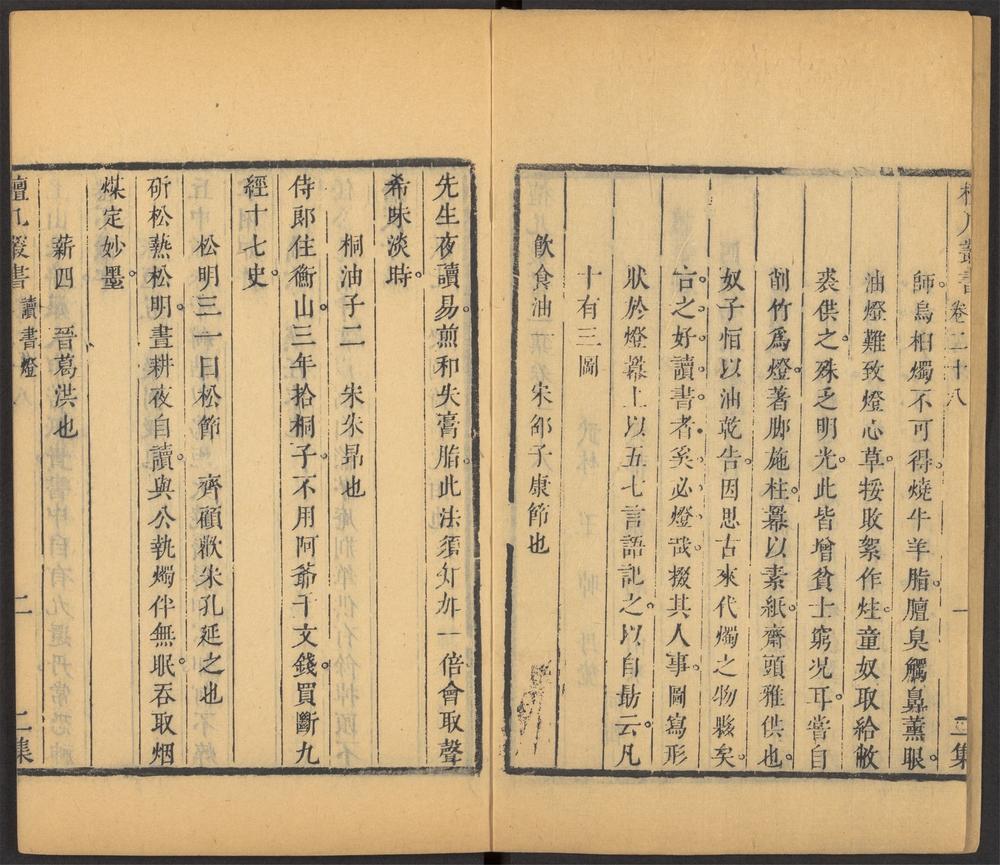 檀几叢書 卷二十八 一 二集
師烏桕燭不可得燒牛羊脂膻臭觸鼻薰眼
油燈難致燈心草挼敗絮作炷童奴取給敝
裘供之殊乏明光此皆增貧士窮况耳嘗自
削竹爲燈著脚施柱冪以素紙齋頭雅供也
奴子恒以油乾告因思古來代燭之物夥矣
古之好讀書者奚必燈哉掇其人事圖寫形
狀於燈冪上以五七言語記之以自勖云凡
十有三圖
飲食油一 宋邵子康節也
先生夜讀易煎和失膏脂此法須知加一倍會取聲
希味淡時
桐油子二 宋朱昂也
侍郎住衡山三年拾桐子不用阿爺千文錢買斷九
經十七史
松明三一曰松節 齊顧歡朱孔延之也
斫松爇松明晝耕夜自讀與公執燭伴無眠吞取烟
煤定妙墨
薪四 晉葛洪也
檀几叢書 讀書燈 二 二集